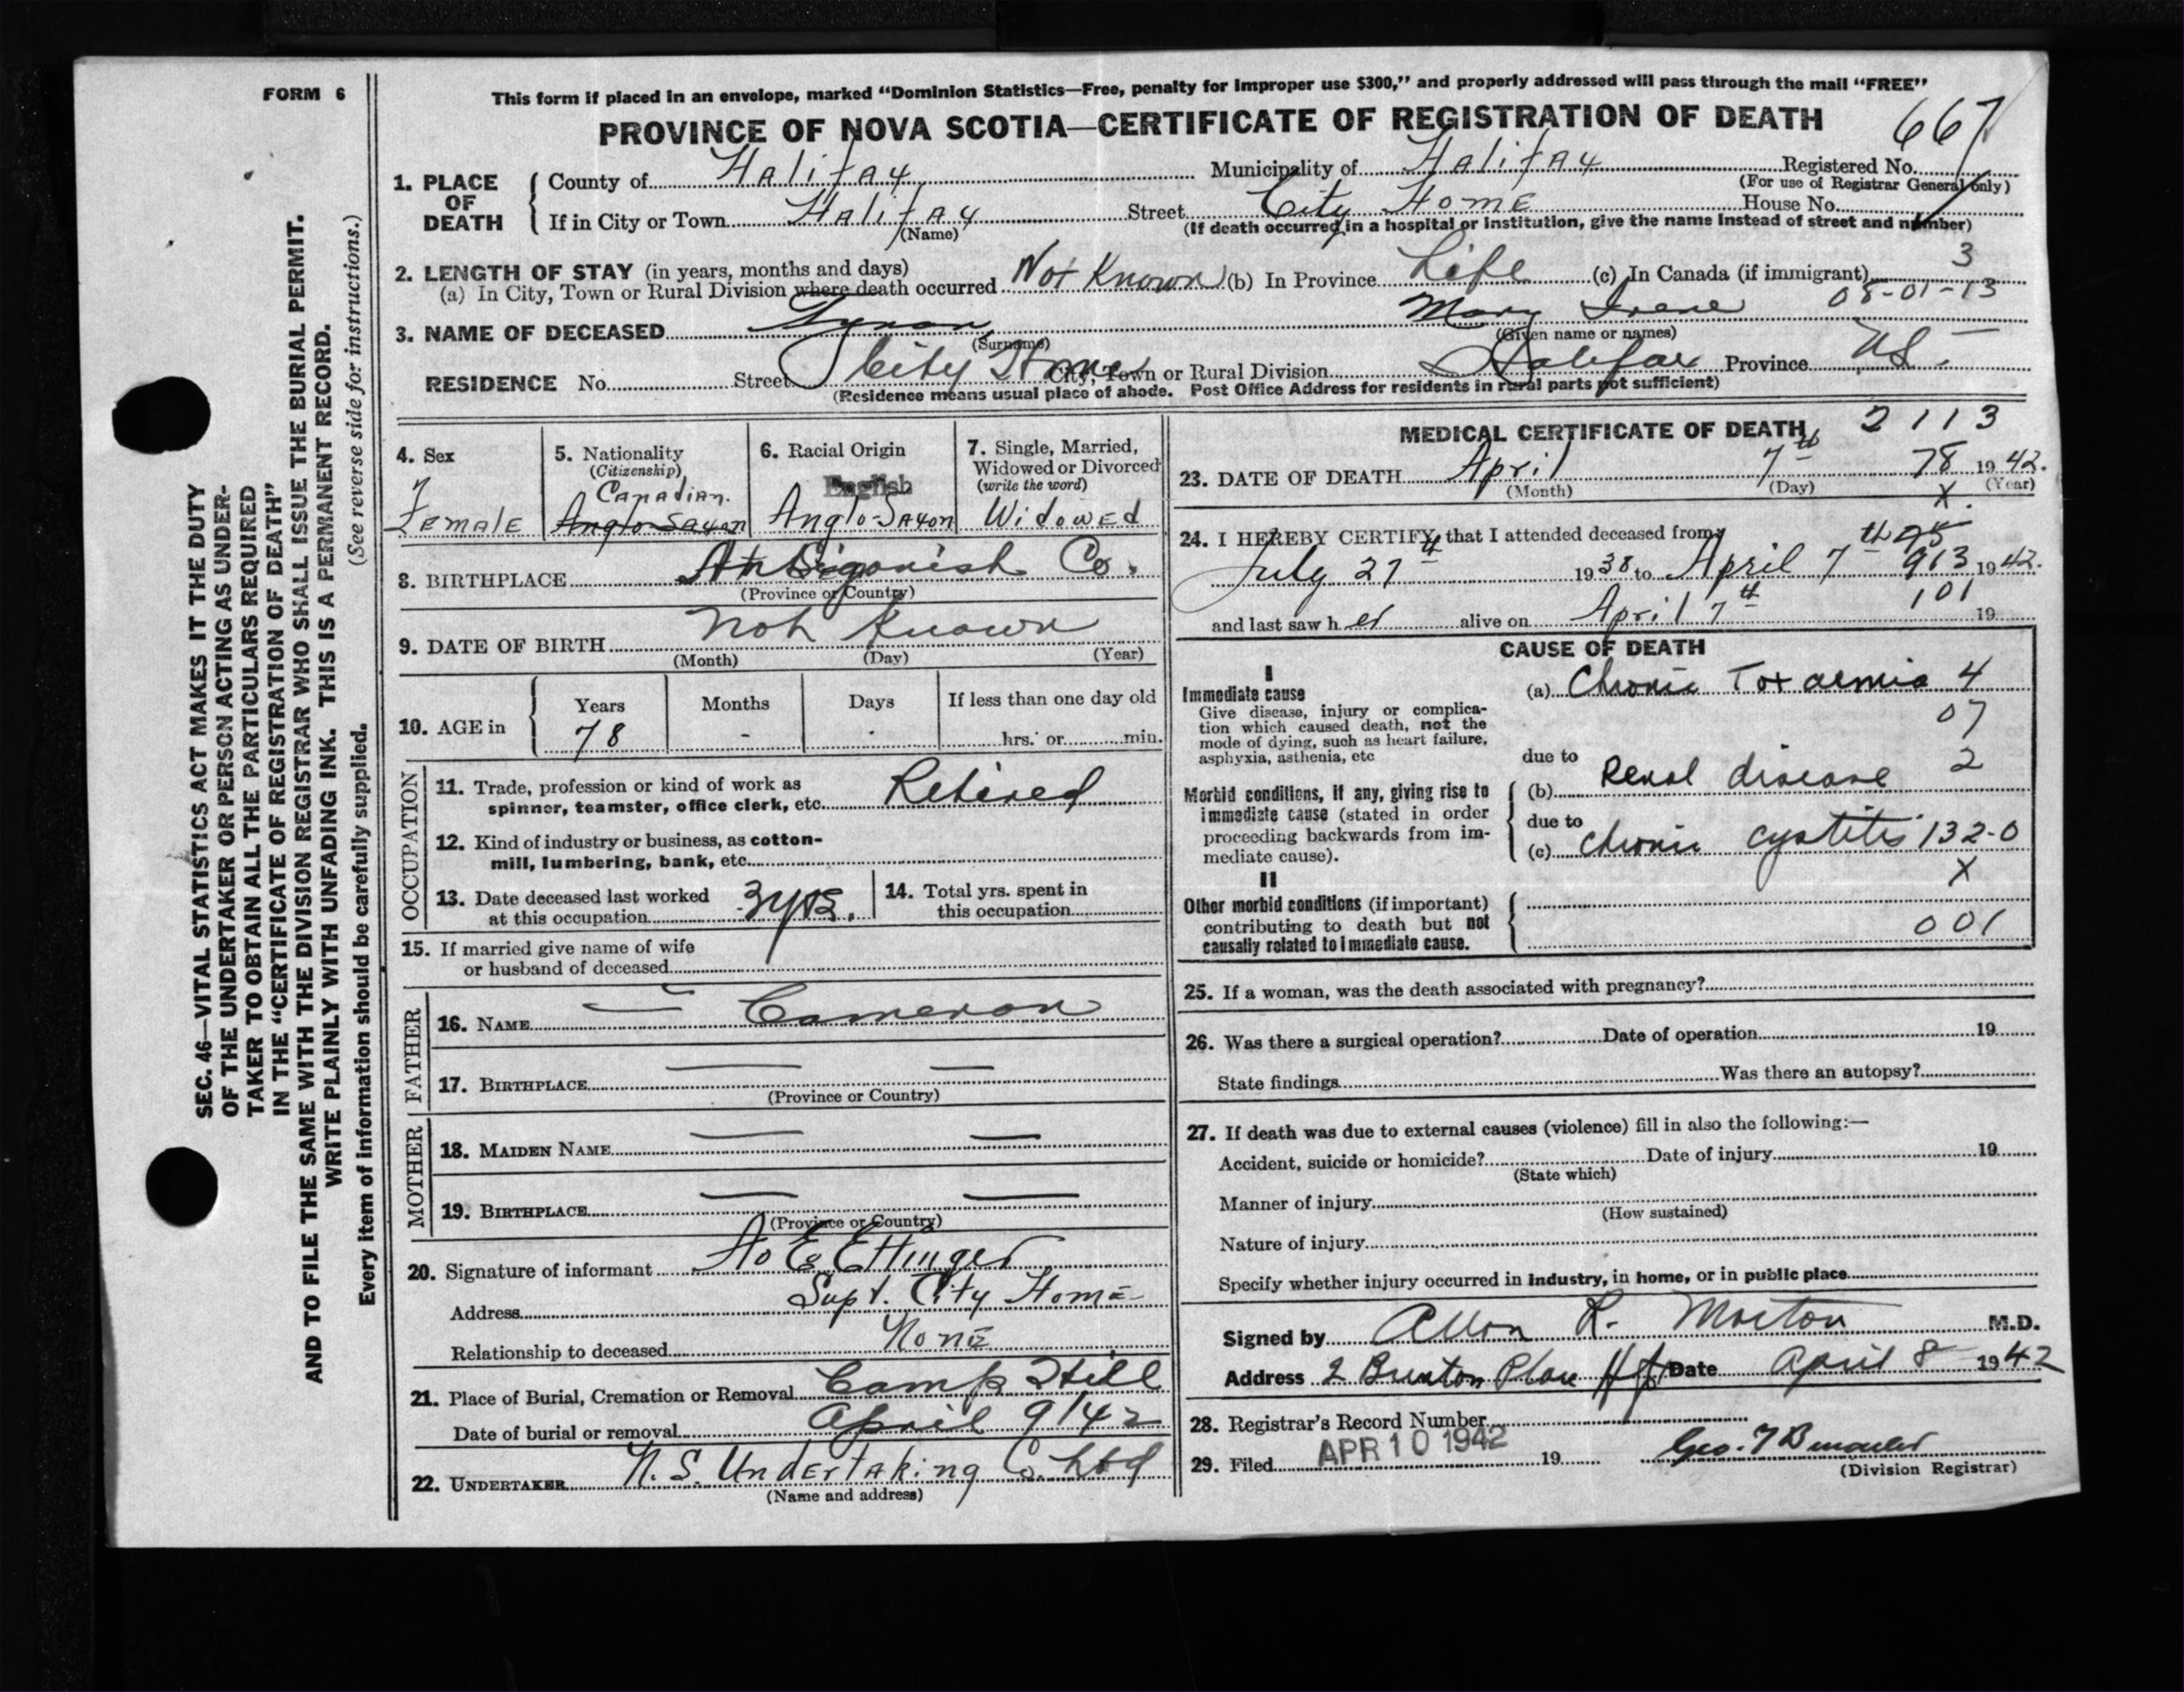 FORM 6
This form if placed in an envelope, marked "Dominion Statistics—Free, penalty for improper use $300," and properly addressed will pass through the mail "FREE"
PROVINCE OF NOVA SCOTIA—CERTIFICATE OF REGISTRATION OF DEATH
667
1. PLACE OF DEATH
County of Halifax Municipality of Halifax Registered No.
(For use of Registrar General only)
If in City or Town Halifax Street City Home House No.
(Name) (If death occurred in a hospital or institution, give the name instead of street and number)
2. LENGTH OF STAY (in years, months and days)
(a) In City, Town or Rural Division where death occurred Not Known (b) In Province Life (c) In Canada (if immigrant) 3
08-01-13
3. NAME OF DECEASED Mary Irene
(Surname) (Given name or names)
RESIDENCE No. Street City Home City, Town or Rural Division Halifax Province N.S.
(Residence means usual place of abode. Post Office Address for residents in rural parts not sufficient)
4. Sex
Female
5. Nationality
(Citizenship)
Canadian.
Anglo-Saxon
6. Racial Origin
English
Anglo-Saxon
7. Single, Married,
Widowed or Divorced
(write the word)
Widowed
8. BIRTHPLACE Antigonish Co.
(Province or Country)
9. DATE OF BIRTH Not Known
(Month) (Day) (Year)
10. AGE in
Years Months Days If less than one day old
78 - . hrs. or min.
OCCUPATION
11. Trade, profession or kind of work as
spinner, teamster, office clerk, etc. Retired
12. Kind of industry or business, as cotton-
mill, lumbering, bank, etc.
13. Date deceased last worked
at this occupation 3 yrs.
14. Total yrs. spent in
this occupation
15. If married give name of wife
or husband of deceased
FATHER
16. NAME — Cameron
17. BIRTHPLACE — —
(Province or Country)
MOTHER
18. MAIDEN NAME — —
19. BIRTHPLACE — —
(Province or Country)
20. Signature of informant Ettinger
Address Supt. City Home
Relationship to deceased None
21. Place of Burial, Cremation or Removal Camp Hill
Date of burial or removal April 9/42
22. UNDERTAKER N.S. Undertaking Co. Ltd
(Name and address)
MEDICAL CERTIFICATE OF DEATH 2113
23. DATE OF DEATH April 7th 78 1942.
(Month) (Day) (Year)
X
24. I HEREBY CERTIFY that I attended deceased from
July 27th 1938 to April 7th 913 1942.
and last saw her alive on April 7th 101 19
CAUSE OF DEATH
I
Immediate cause
Give disease, injury or complica-
tion which caused death, not the
mode of dying, such as heart failure,
asphyxia, asthenia, etc
(a) Chronic Toxaemia 4
07
due to
Morbid conditions, if any, giving rise to
immediate cause (stated in order
proceeding backwards from im-
mediate cause).
(b) Renal disease 2
due to
(c) Chronic cystitis 132-0
X
II
Other morbid conditions (if important)
contributing to death but not
causally related to immediate cause.
001
25. If a woman, was the death associated with pregnancy?
26. Was there a surgical operation? Date of operation 19
State findings Was there an autopsy?
27. If death was due to external causes (violence) fill in also the following:—
Accident, suicide or homicide? Date of injury 19
(State which)
Manner of injury
(How sustained)
Nature of injury
Specify whether injury occurred in industry, in home, or in public place
Signed by Allan R. Morton M.D.
Address 2 Date April 8 1942
28. Registrar's Record Number
29. Filed APR 10 1942 19 Geo.
(Division Registrar)
SEC. 46—VITAL STATISTICS ACT MAKES IT THE DUTY
OF THE UNDERTAKER OR PERSON ACTING AS UNDER-
TAKER TO OBTAIN ALL THE PARTICULARS REQUIRED
IN THE "CERTIFICATE OF REGISTRATION OF DEATH"
AND TO FILE THE SAME WITH THE DIVISION REGISTRAR WHO SHALL ISSUE THE BURIAL PERMIT.
WRITE PLAINLY WITH UNFADING INK. THIS IS A PERMANENT RECORD.
Every item of information should be carefully supplied. (See reverse side for instructions.)